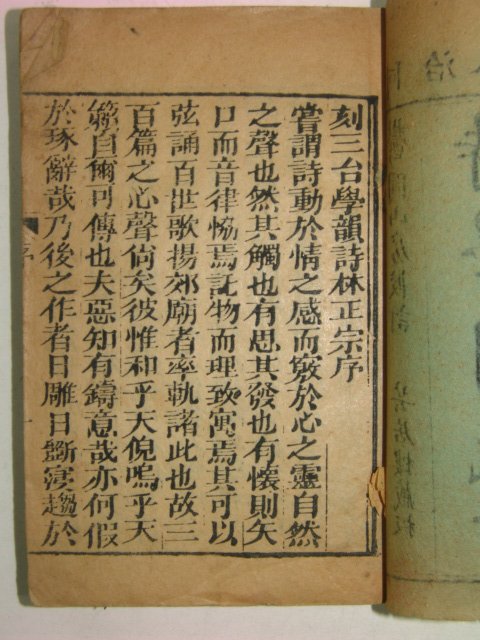 刻三台學韻詩林正宗序
嘗謂詩動於情之感而竅於心之靈自然
之聲也然其觸也有思其發也有懷則矢
口而音律恊焉託物而理致寓焉其可以
弦誦百世歌揚郊廟者率軌諸此也故三
百篇之心聲尙矣彼惟和乎天倪嗚乎天
籟自爾可傳也夫惡知有鑄意哉亦何假
於琢辭哉乃後之作者日雕日斵寖趨於
序